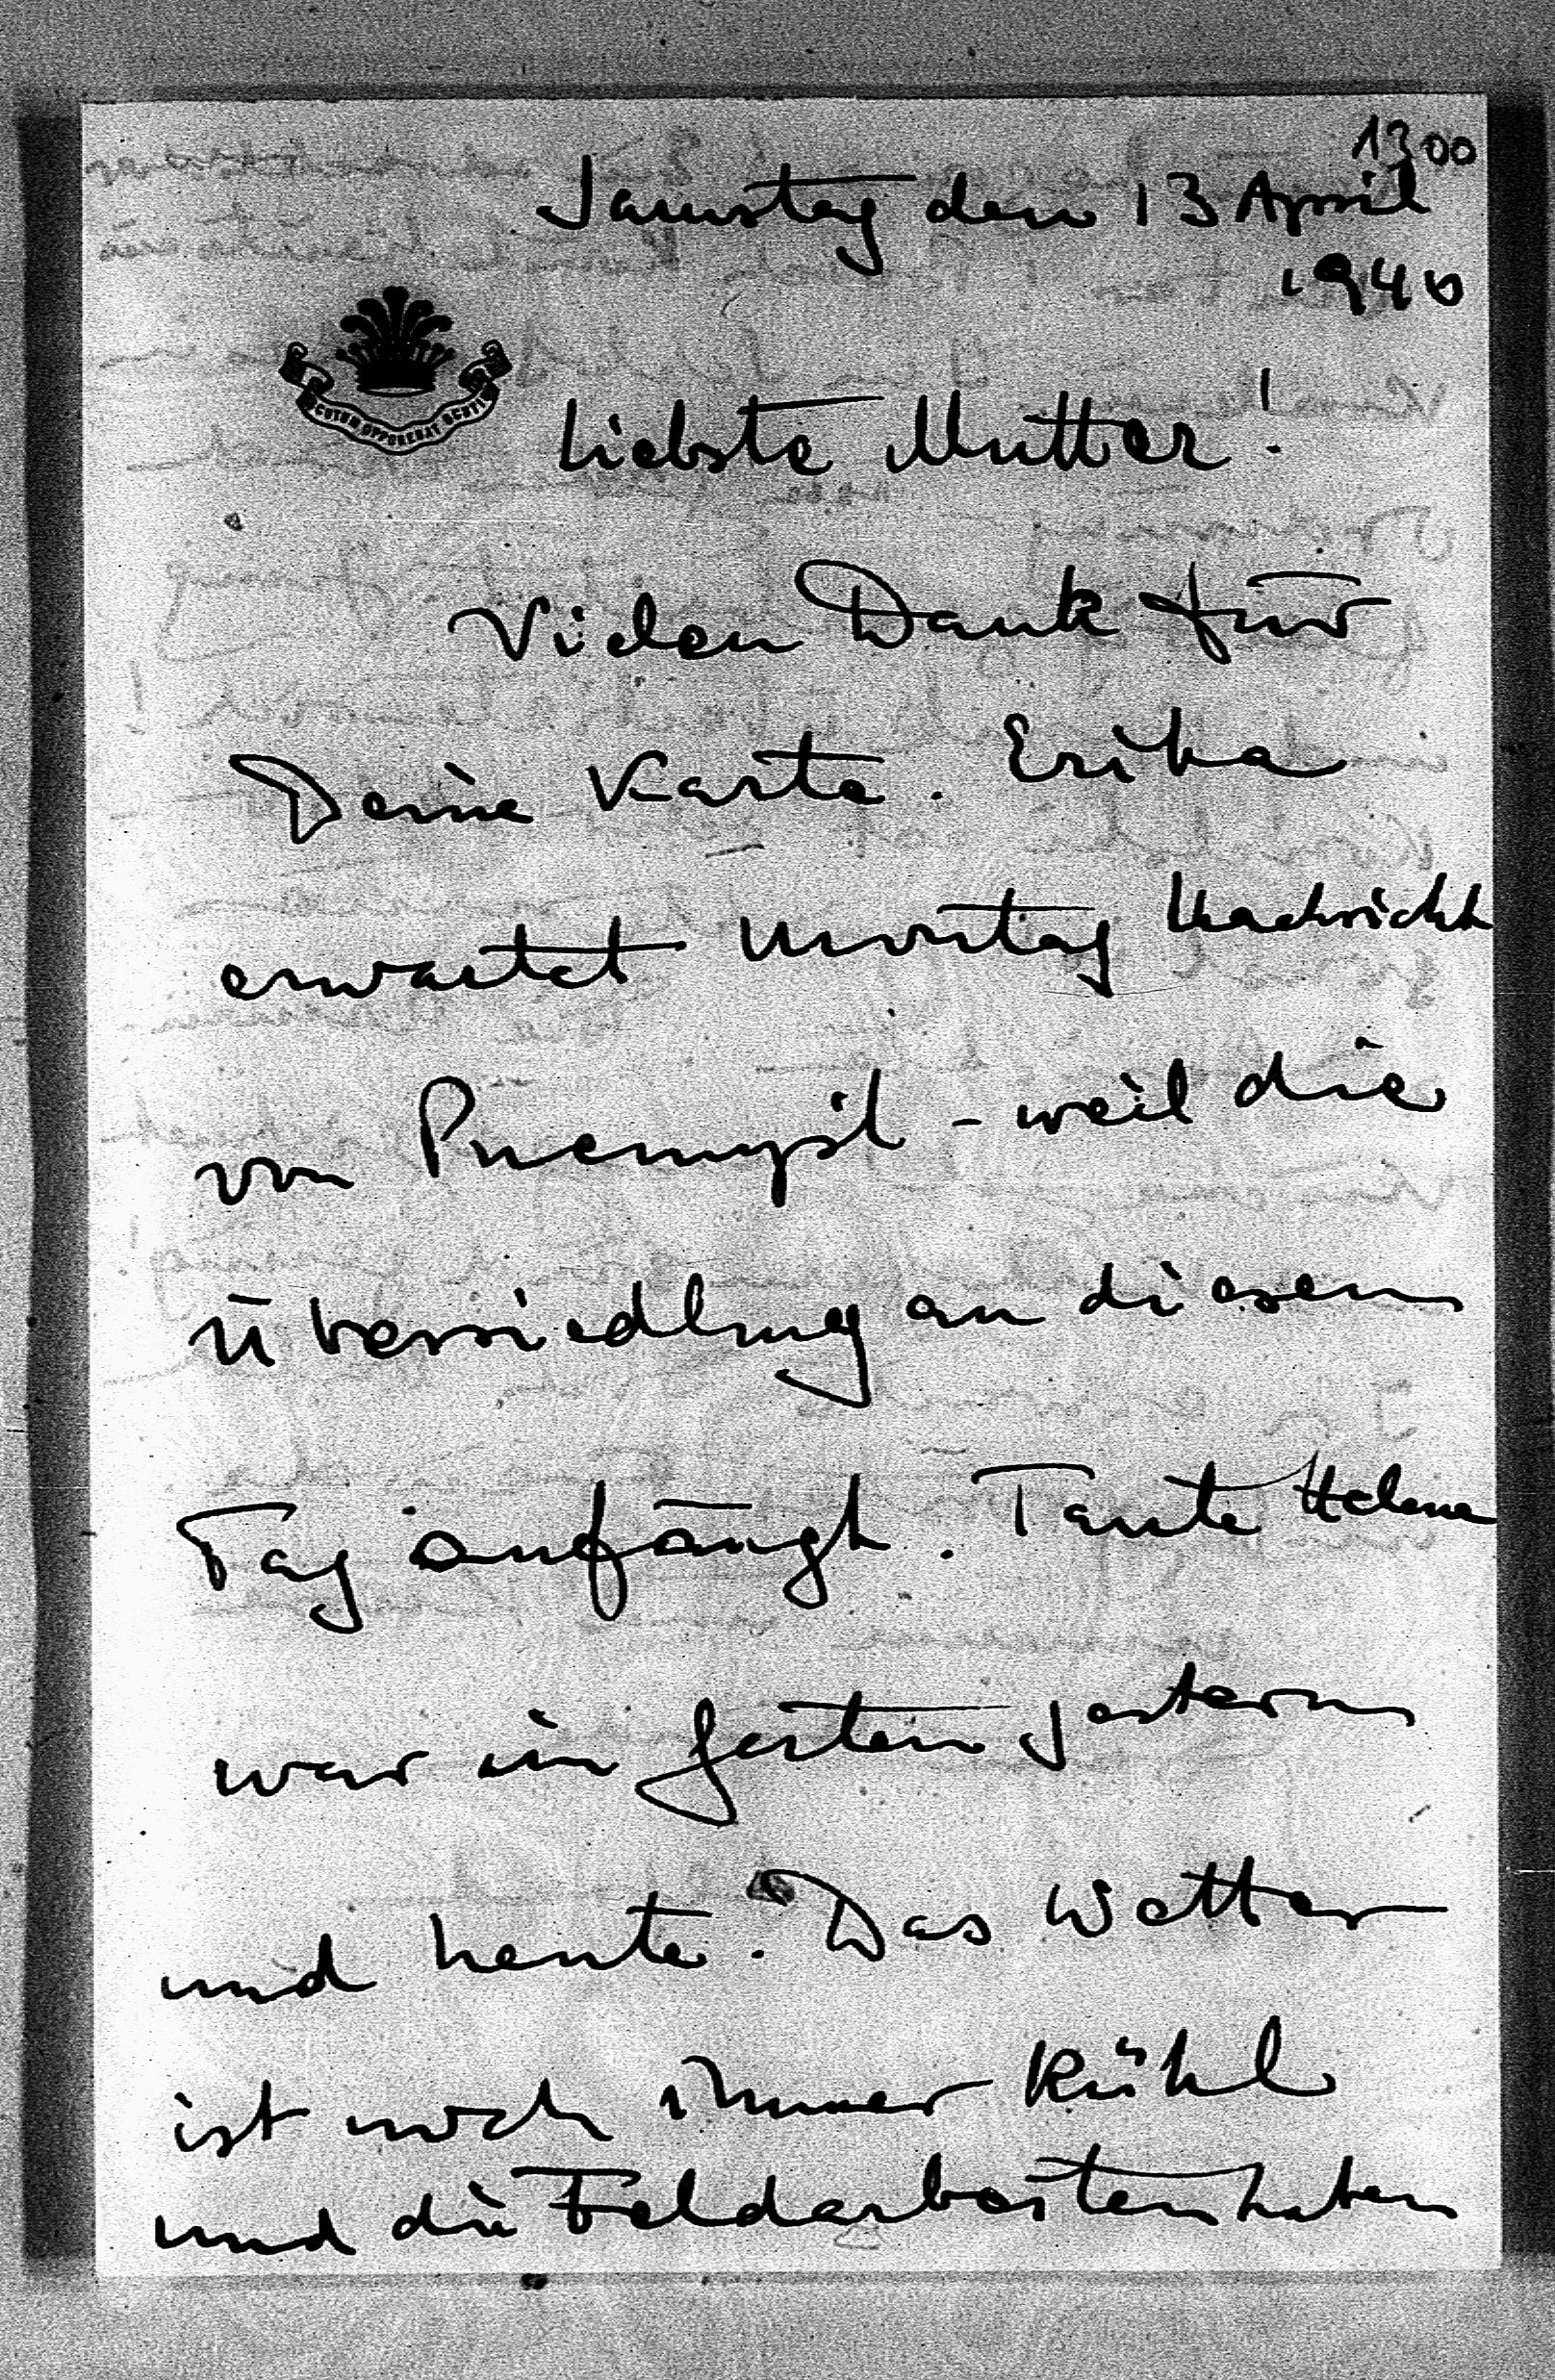 1300
Samstag den 13 April
1940
SCUTUM OPPONEBAT SCUTIS
Liebste Mutter!
Vielen Dank für
Deine Karte. Erika
erwartet Montag Nachricht
von Przemysl - weil die
Übersiedlung an diesem
Tag anfängt. Tante Helene
war in gestern
und heute. Das Wetter
ist noch immer kühl
und die Feldarbeiten haben